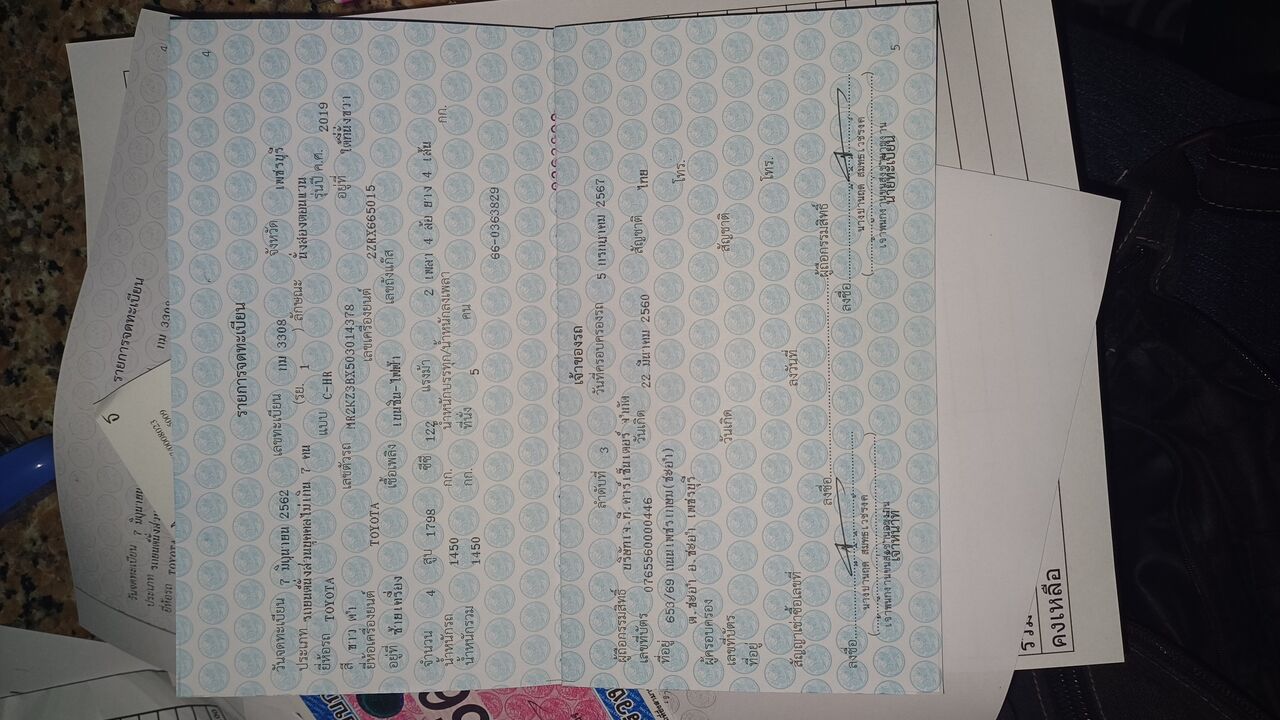 4
รายการจดทะเบียน
วันจดทะเบียน 7 มิถุนายน 2562 เลขทะเบียน กม 3308 จังหวัด เพชรบุรี
ประเภท รถยนต์นั่งส่วนบุคคลไม่เกิน 7 คน (รย. 1 ) ลักษณะ นั่งสองตอนแวน
ยี่ห้อรถ TOYOTA แบบ C-HR รุ่นปี ค.ศ. 2019
สี ขาว ดำ เลขตัวรถ MR2KZ3BX503014378 อยู่ที่ ใต้ที่นั่งขวา
ยี่ห้อเครื่องยนต์ TOYOTA เลขเครื่องยนต์ 2ZRX665015
อยู่ที่ ซ้ายเครื่อง เชื้อเพลิง เบนซิน-ไฟฟ้า เลขถังแก๊ส
จำนวน 4 สูบ 1798 ซีซี 122 แรงม้า 2 เพลา 4 ล้อ ยาง 4 เส้น
น้ำหนักรถ 1450 กก. น้ำหนักบรรทุก/น้ำหนักลงเพลา กก.
น้ำหนักรวม 1450 กก. ที่นั่ง 5 คน
66-0363829
เจ้าของรถ
ลำดับที่ 3 วันที่ครอบครองรถ 5 กรกฎาคม 2567
ผู้ถือกรรมสิทธิ์ บริษัทเจ.ที.คาร์เซ็นเตอร์ จำกัด
เลขที่บัตร 0765560000446 วันเกิด 22 มีนาคม 2560 สัญชาติ ไทย
ที่อยู่ 653/69 ถนนเพชรเกษม(ชะอำ) โทร.
ต.ชะอำ อ.ชะอำ เพชรบุรี
ผู้ครอบครอง
เลขที่บัตร วันเกิด สัญชาติ
ที่อยู่ โทร.
สัญญาเช่าซื้อเลขที่ ลงวันที่
ลงชื่อ ผู้ถือกรรมสิทธิ์
ลงชื่อ ลงชื่อ
เจ้าหน้าที่ นายทะเบียน
5
รายการจดทะเบียน
วันจดทะเบียน 7 มิถุนายน
กม 3308
ยี่ห้อรถ TOYOTA
รวม
คงเหลือ